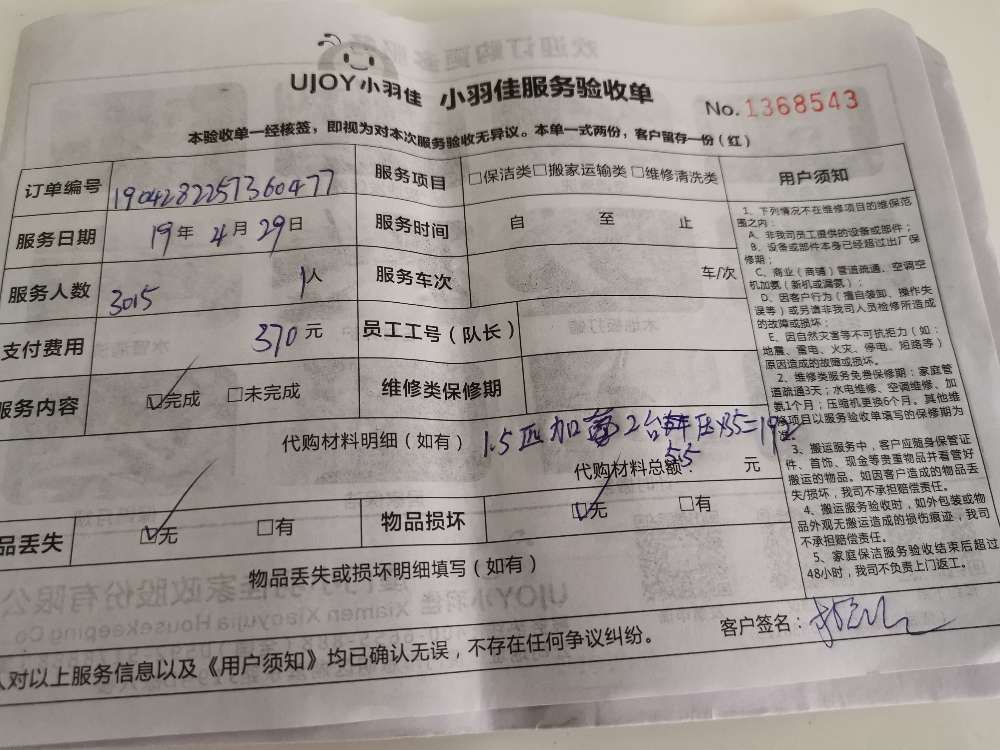 UJOY小羽佳 小羽佳服务验收单 No.1368543
本验收单一经核签，即视为对本次服务验收无异议。本单一式两份，客户留存一份（红）
订单编号 1904282257360477 服务项目 □保洁类□搬家运输类□维修清洗类 用户须知
服务日期 19年4月29日 服务时间 自 至 止
服务人数 3015 1人 服务车次 车/次
支付费用 370元 员工工号（队长）
服务内容 ☑完成 □未完成 维修类保修期
代购材料明细（如有）1.5匹加 2台 压 35=192
代购材料总额： 55 元
品丢失 ☑无 □有 物品损坏 ☑无 □有
物品丢失或损坏明细填写（如有）
1、下列情况不在维修项目的维保范
围之内：
A、非我司员工提供的设备或部件；
B、设备或部件本身已经超过出厂保
修期；
C、商业（商铺）管道疏通、空调空
机加氨（新机或漏氨）；
D、因客户行为（擅自装卸、操作失
误等）或另请非我司人员检修所造成
的故障或损坏；
E、因自然灾害等不可抗拒力（如：
地震、雷电、火灾、停电、短路等）
原因造成的故障或损坏。
2、维修类服务免费保修期：家庭管
道疏通3天；水电维修、空调维修、加
氨1个月；压缩机更换6个月。其他维
修项目以服务验收单填写的保修期为
准。
3、搬运服务中，客户应随身保管证
件、首饰、现金等贵重物品并看管好
搬运的物品。如因客户造成的物品丢
失/损坏，我司不承担赔偿责任。
4、搬运服务验收时，如外包装或物
品外观无搬运造成的损伤痕迹，我司
不承担赔偿责任。
5、家庭保洁服务验收结束后超过
48小时，我司不负责上门返工。
人对以上服务信息以及《用户须知》均已确认无误，不存在任何争议纠纷。 客户签名：